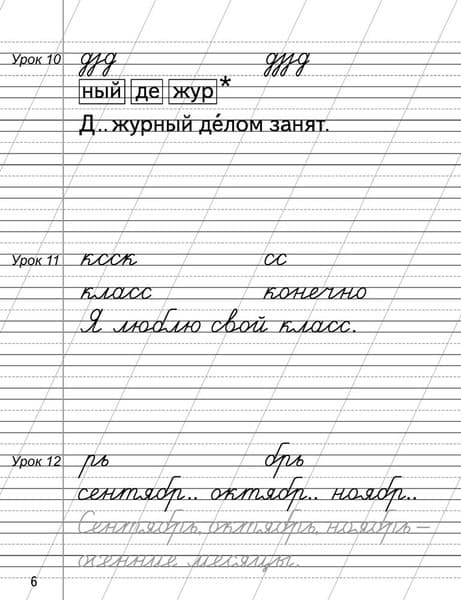 Урок 10
ный де жур*
Д..журный де́лом занят.
Урок 11 ксск сс
класс конечно
Я люблю свой класс.
Урок 12 рь брь
сентябр.. октябр.. ноябр..
Сентябрь, октябрь, ноябрь –
осенние месяцы.
6